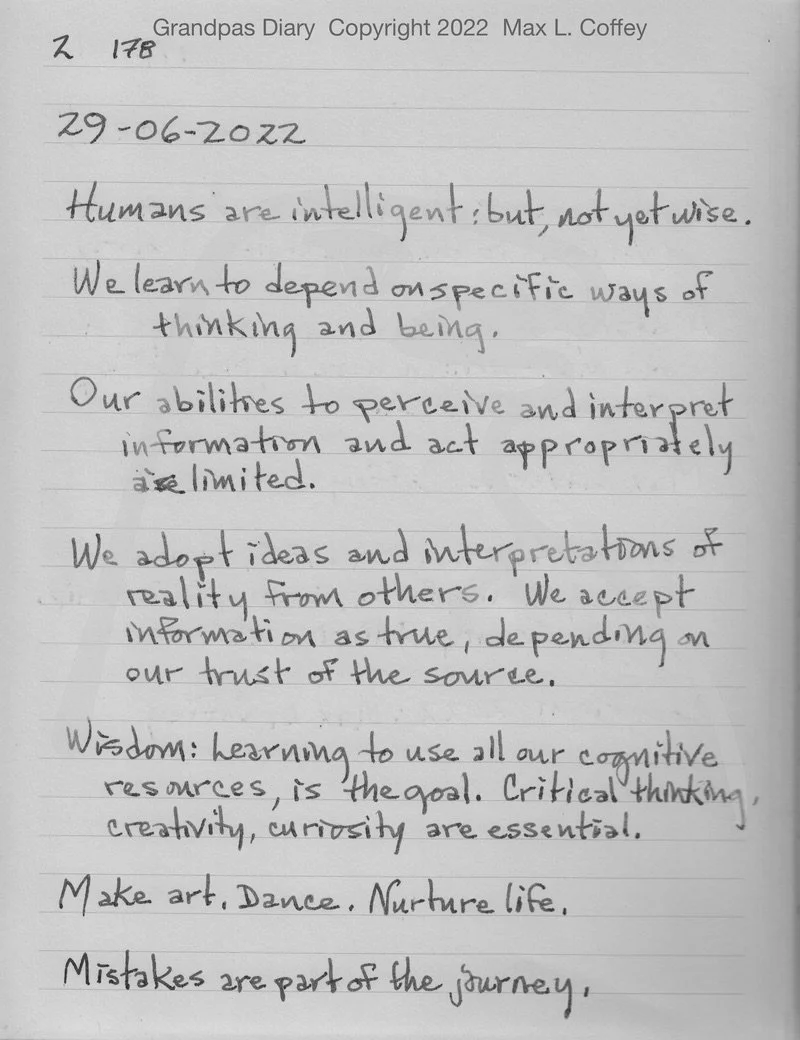 Grandpas Diary Copyright 2022 Max L. Coffey
2 178
29-06-2022
Humans are intelligent: but, not yet wise.
We learn to depend on specific ways of
thinking and being.
Our abilities to perceive and interpret
information and act appropriately
are limited.
We adopt ideas and interpretations of
reality from others. We accept
information as true, depending on
our trust of the source.
Wisdom: Learning to use all our cognitive
resources, is the goal. Critical thinking,
creativity, curiosity are essential.
Make art. Dance. Nurture life.
Mistakes are part of the journey.